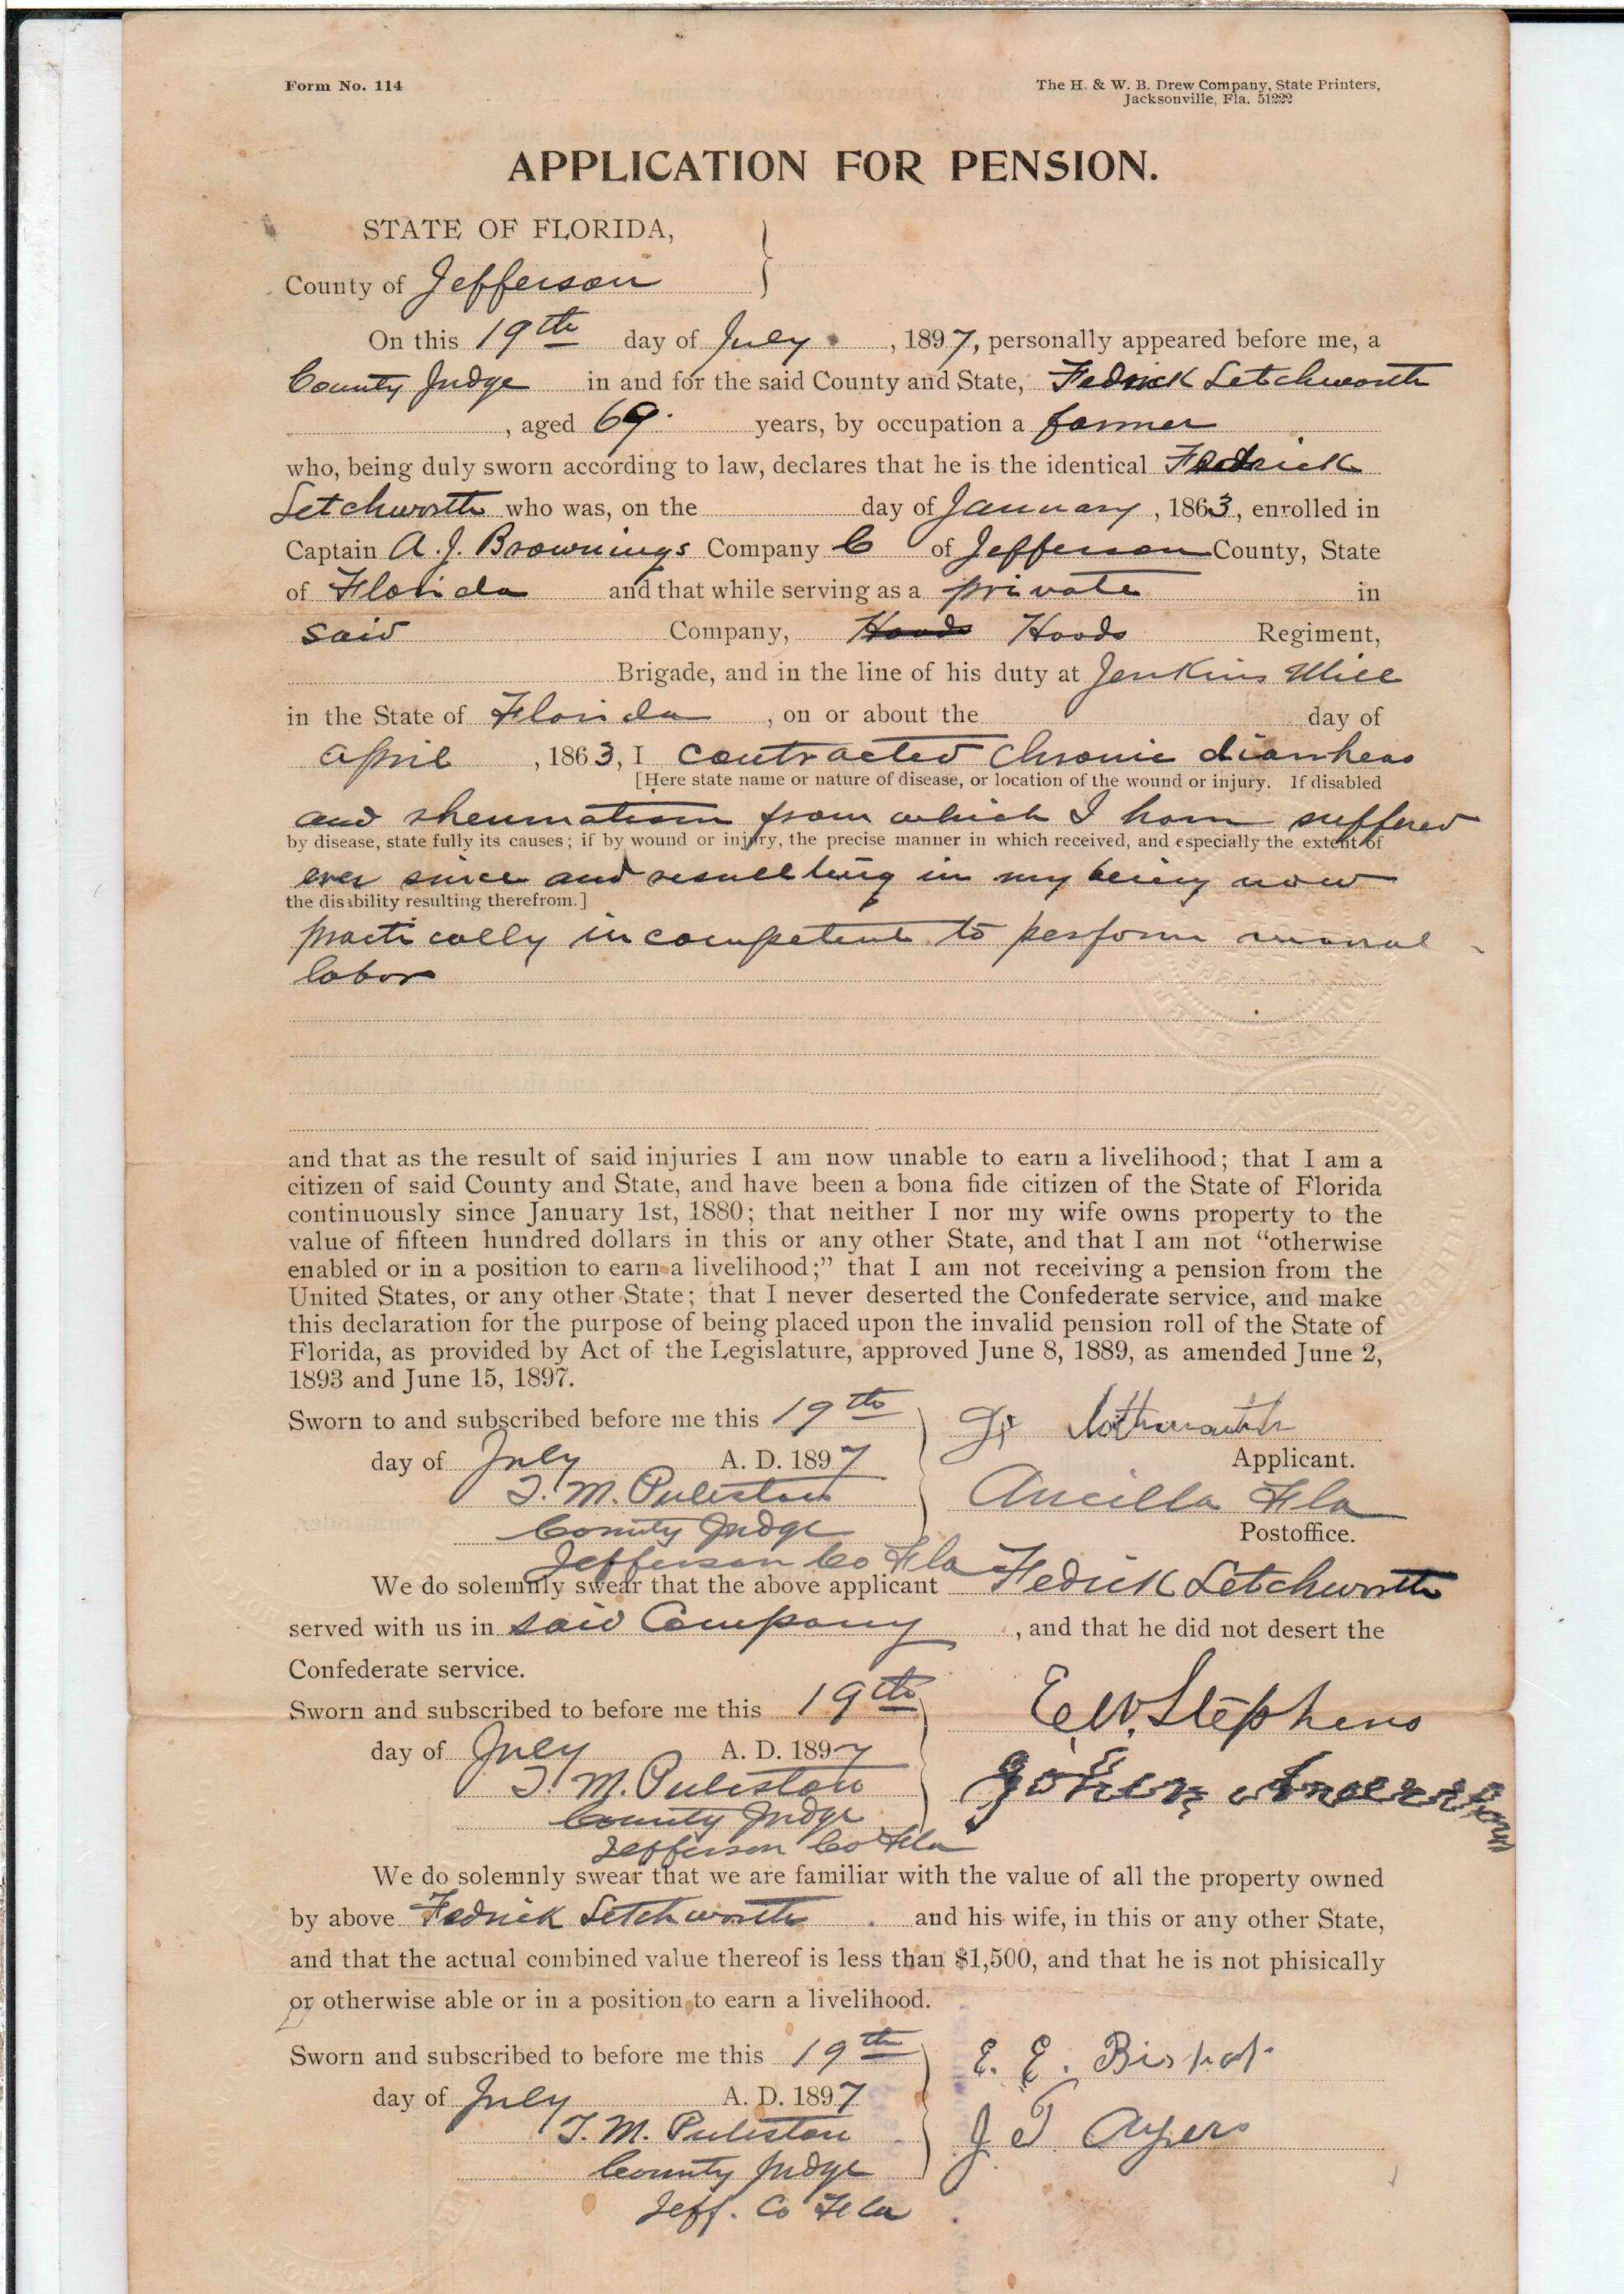 Form No. 114
The H. & W. B. Drew Company, State Printers,
Jacksonville, Fla. 51222
APPLICATION FOR PENSION.
STATE OF FLORIDA,
County of Jefferson
On this 19th day of July, 1897, personally appeared before me, a
County Judge in and for the said County and State, Fedrick Letchworth
, aged 69 years, by occupation a farmer
who, being duly sworn according to law, declares that he is the identical Fedrick
Letchworth who was, on the day of January, 1863, enrolled in
Captain A. J. Brownings Company C of Jefferson County, State
of Florida and that while serving as a private in
said Company, Hoods Hoods Regiment,
Brigade, and in the line of his duty at Jenkins Mill
in the State of Florida, on or about the day of
April, 1863, I contracted Chronic diarrheas
[Here state name or nature of disease, or location of the wound or injury. If disabled
and rheumatism from which I have suffered
by disease, state fully its causes; if by wound or injury, the precise manner in which received, and especially the extent of
ever since and resulting in my being now
the disability resulting therefrom.]
practically incompetent to perform manual
labor
and that as the result of said injuries I am now unable to earn a livelihood; that I am a
citizen of said County and State, and have been a bona fide citizen of the State of Florida
continuously since January 1st, 1880; that neither I nor my wife owns property to the
value of fifteen hundred dollars in this or any other State, and that I am not "otherwise
enabled or in a position to earn a livelihood;" that I am not receiving a pension from the
United States, or any other State; that I never deserted the Confederate service, and make
this declaration for the purpose of being placed upon the invalid pension roll of the State of
Florida, as provided by Act of the Legislature, approved June 8, 1889, as amended June 2,
1893 and June 15, 1897.
Sworn to and subscribed before me this 19th
day of July A. D. 1897
Applicant.
T. M. Puleston
Aucilla Fla
County Judge
Postoffice.
Jefferson Co Fla
We do solemnly swear that the above applicant Fedrick Letchworth
served with us in said Company, and that he did not desert the
Confederate service.
Sworn and subscribed to before me this 19th
E. W. Stephens
day of July A. D. 1897
T. M. Puleston
John
County Judge
Jefferson Co Fla
We do solemnly swear that we are familiar with the value of all the property owned
by above Fedrick Letchworth and his wife, in this or any other State,
and that the actual combined value thereof is less than $1,500, and that he is not phisically
or otherwise able or in a position to earn a livelihood.
Sworn and subscribed to before me this 19th
E. E. Bishop
day of July A. D. 1897
T. M. Puleston
J T Ayers
County Judge
Jeff. Co Fla